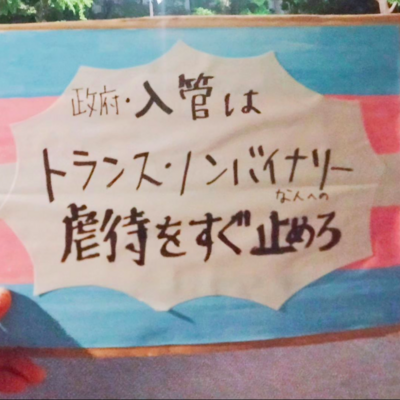 政府・入管は
トランス・ノンバイナリー
な人への
虐待をすぐ止めろ